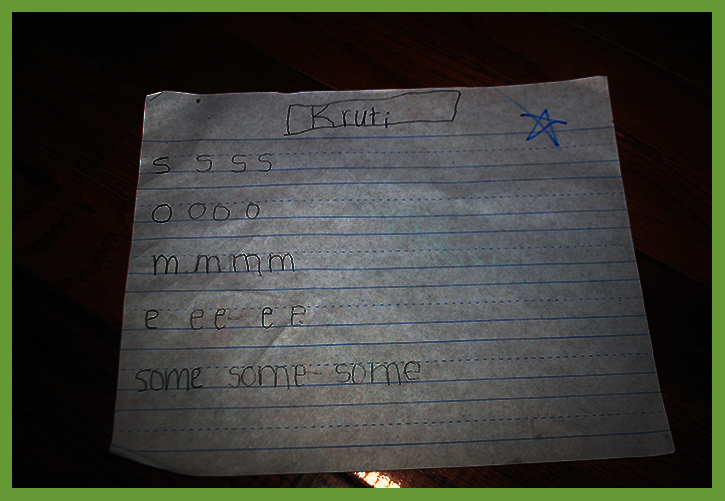 Kruti
s s s s
o o o o
m m m m
e e e e e
some some some